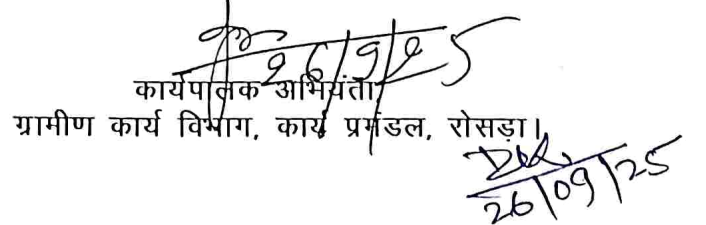 26/9/25
कार्यपालक अभियंता,
ग्रामीण कार्य विभाग, कार्य प्रमंडल, रोसड़ा।
26/09/25